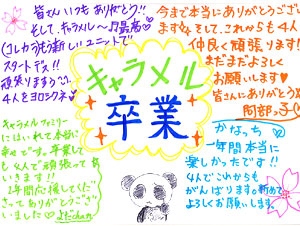 皆さんいつもありがとう!!
そして、キャラメル〜♪最高♡
(コレカラも新しいユニットで
スタートデス!!
頑張りますっ
4人をヨロシクネ
今まで本当にありがとうござい
ます。そして、これからも4人
仲良く頑張ります!
まだまだよろしく
お願いします♡
皆さんにありがとう
阿部
キャラメル
卒業
キャラメルファミリー
にはいれて本当に
幸せです。卒業して
も4人で頑張って
いきます!!
2年間応援してくだ
さってありがとうござ
いました♡
かなっち
一年間本当に
楽しかったです!!
4人でこれからも
がんばります。初めて
よろしくお願いします。